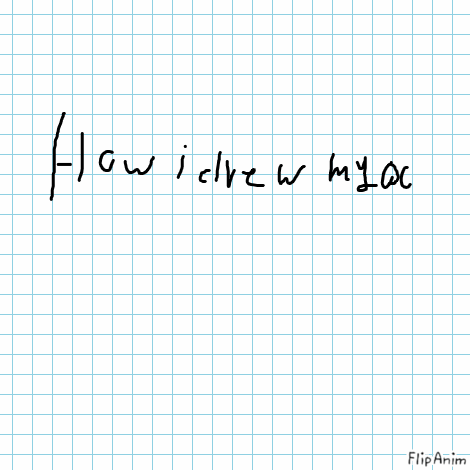 How i drew my oc
FlipAnim